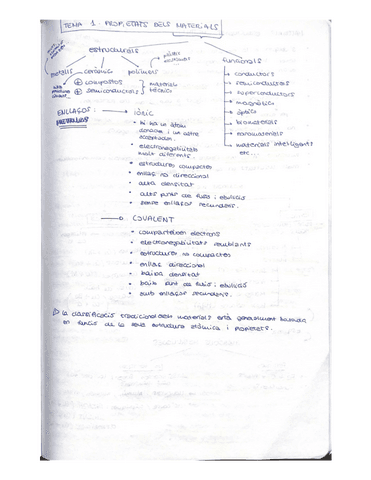 TEMA 1 - PROPIETATS DELS MATERIALS
estructurals
funcionals
metalls ceràmics polímers
+ compostos
+ semiconductors
materials
tècnics
→ conductors
→ semiconductors
→ superconductors
→ magnètics
→ òptics
→ biomaterials
→ nanomaterials
→ materials intel·ligents
etc...
ENLLAÇOS: → iònic
• hi ha un àtom
donador i un altre
acceptador.
• electronegativitats
molt diferents.
• estructures compactes
• enllaç no direccional
• alta densitat
• alts punts de fusió i ebullició
• sense enllaços secundaris.
→ COVALENT
• comparteixen electrons
• electronegativitats semblants
• estructures no compactes
• enllaç direccional
• baixa densitat
• baix punt de fusió i ebullició
• amb enllaços secundaris.
▷ La classificació tradicional dels materials està generalment basada
en funció de la seva estructura atòmica i propietats.